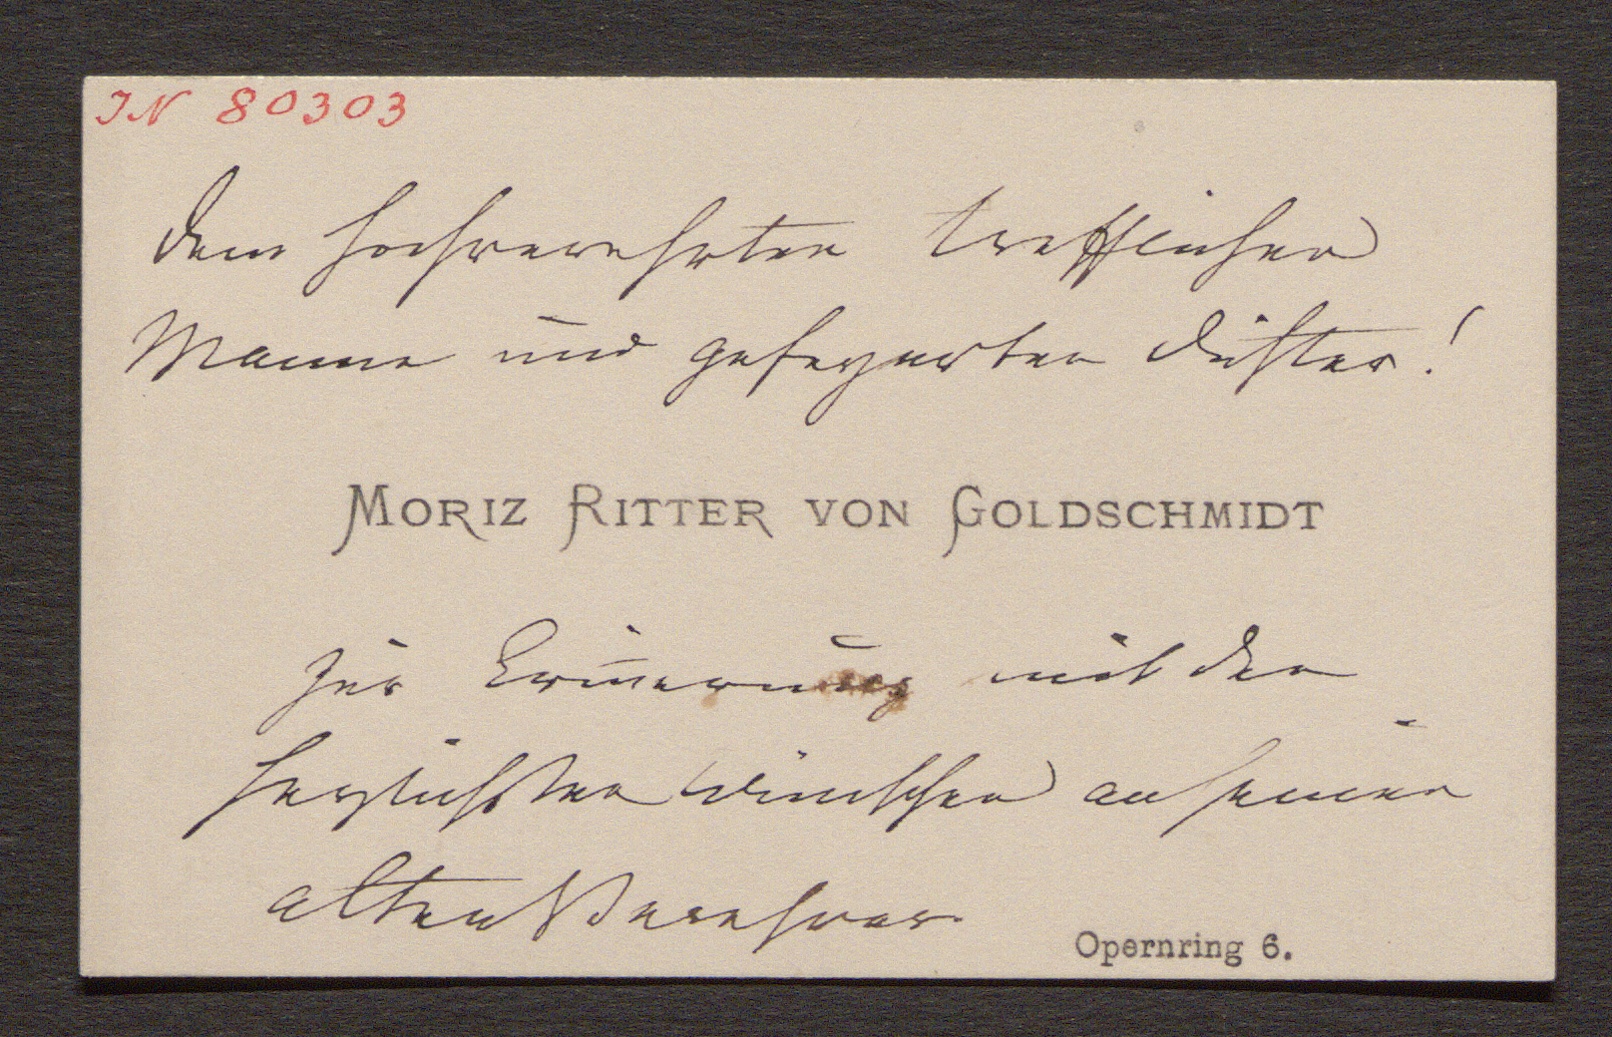 IN 80303
Dem hochverehrten trefflichen
Manne und gefeyerten Dichter!
MORIZ RITTER VON GOLDSCHMIDT
zur Erinnerung mit den
herzlichsten Wünschen an seinen
alten Verehrer
Opernring 6.